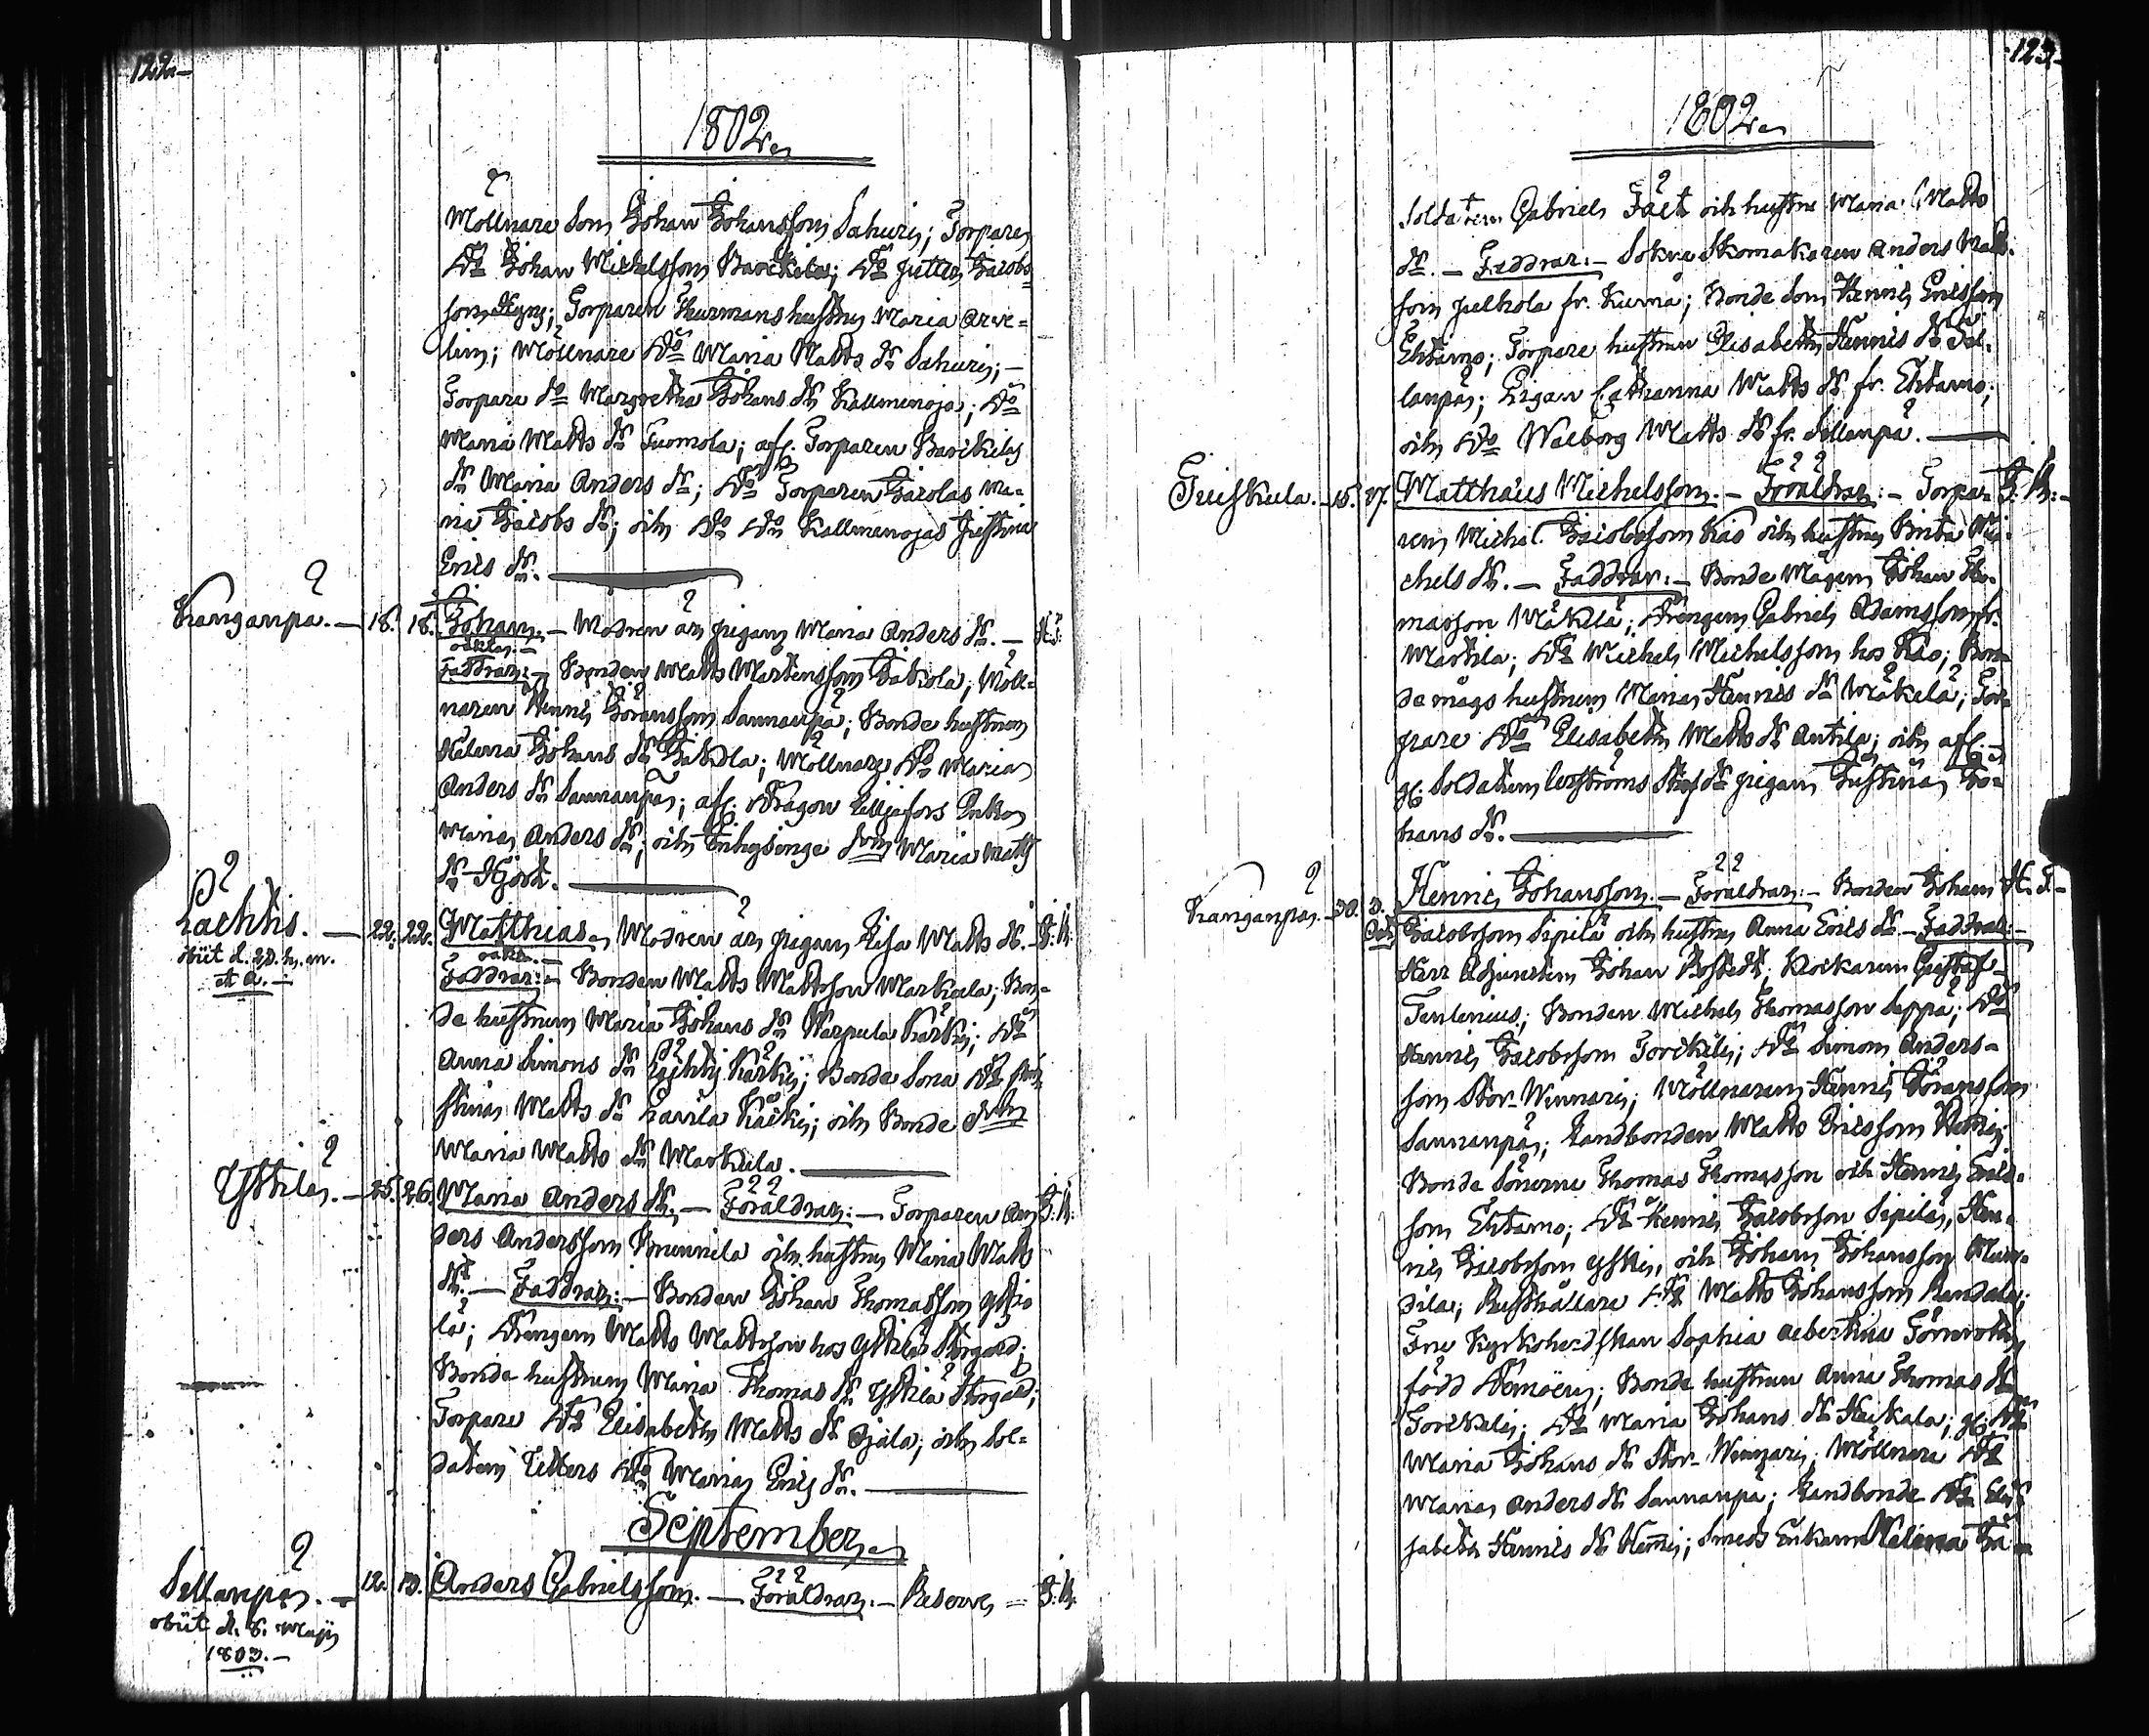 122.
1802.
Möllnare Son Johan Johansson Sahuri; Torpare
Do Johan Michelsson Barckila; Do Jutter Jacobs
son; Torparen Thurmans hustru Maria Arve=
lin; Möllnare Do Maria Matts dr Sahuri; —
Torpare Do Margretha Johans dr Kallmenoja; Do
Maria Matts dr Tuomola; afl. Torparen Barckilas
dr Maria Anders dr; Do Torparen Jäcolas Ma=
ria Jacobs dr; och Do Do Kallmenojas Justina
Erics dr. —
Kanganpä. — 18. 18. Johan. — Modren är pigan Maria Anders dr. — H. T.
oäkta. —
Faddrar: — Bonden Matts Mårtensson Jakola, Möll=
naren Henric Göransson Saunanpä; Bonde hustrun
Helena Johans dr Jakola; Möllnare Do Maria
Anders dr Saunanpä; afl. Dragon Liljafors Enka
Maria Anders dr; och Inhysinge Maria Matts
dr Hjort. —
Lachtis. — 22. 22. Matthias. Modren är pigan Lisa Matts dr. — J. K.
obiit d. 29. h. m.
et a. —
oäkta. —
Faddrar: — Bonden Matts Mattsson Markula; Bon=
de hustrun Maria Johans dr Warpula Kärki; Do
Anna Simons dr Lachtis Kärki; Bonde Sona Do
stina Matts dr Lavila Kärki; och Bonde
Maria Matts dr Markula. —
Yskila. — 25. 26. Maria Anders dr. — Föräldrar: — Torparen An J. K.
ders Andersson Brunnila och hustru Maria Matts
dr. — Faddrar: — Bonden Johan Thomasson Yski
lä; Drengen Matts Mattsson hos Yskilä Storgård;
Bonde hustrun Maria Thomas dr Yskilä Storgård;
Torpare Do Elisabeth Matts dr Ojala; och Sol=
daten Tetters Do Maria Erics dr. —
September.
Sillanpä. — 12. 13. Anders Gabrielsson. — Föräldrar. — Reserve = J. K.
obiit d. 8. Maji
1803. —
123.
1802.
Soldaten Gabriel Fält och hustru Maria Matts
dr. — Faddrar: — Sokne Skomakaren Anders Matts
son Julkola fr. Kuma; Bonde Son Henric Ericsson
Ehtamo; Torpare hustrun Elisabeth Henrics dr Sil=
lanpä; Pigan Catharina Matts dr fr. Ehtamo;
och Do Walborg Matts dr fr. Sillanpä. —
Tuiskula. — 15. 17. Matthæus Michelsson. — Föräldrar: — Torpa= J. K. —
ren Michel Jacobsson Käs och hustru Brita Mi=
chels dr. — Faddrar: — Bonde Mågen Johan Tho=
masson Mäkelä; Drengen Gabriel Adamsson fr.
Markila; Do Michel Michelsson hos Käs; Bon=
de mågs hustrun Maria Henrics dr Mäkelä; Tor=
pare Do Elisabeth Matts dr Antila; och afl.
gl. Soldaten pigan Justina Jo=
hans dr. —
Kanganpä. — 30. 3. Octob. Henric Johansson. — Föräldrar: — Bonden Johan H. T. —
Jacobsson Sipilä och hustru Anna Erics dr — Faddrar: —
Herr Adjuncten Johan Rostedt; Klockaren Gustaf
Tenlenius; Bonden Michel Thomasson Seppä; Do
Henric Jacobsson Torckeli; Do Simon Anders=
son Stor-Winnari; Möllnaren Henric Göransson
Saunanpä; Landbonden Matts Ericsson Hemmi;
Bonde Sönerne Thomas Thomasson och Henric Erics=
son Ehtamo; Do Henric Jacobsson Sipilä, Hen=
ric Jacobsson Yski, och Johan Johansson Mun=
dila; Rusthållare Do Matts Johansson Randala;
Fru Kyrkoherdskan Sophia Albertina Törnroth,
född Armöen; Bonde hustrun Anna Thomas dr
Torckeli; Do Maria Johans dr Heikala; gl. Do
Maria Johans dr Stor-Winnari; Möllnare Do
Maria Anders dr Saunanpä; Landbonde Do Eli=
sabeth Henrics dr Hemmi; Smeds Enkan Helena Ja=